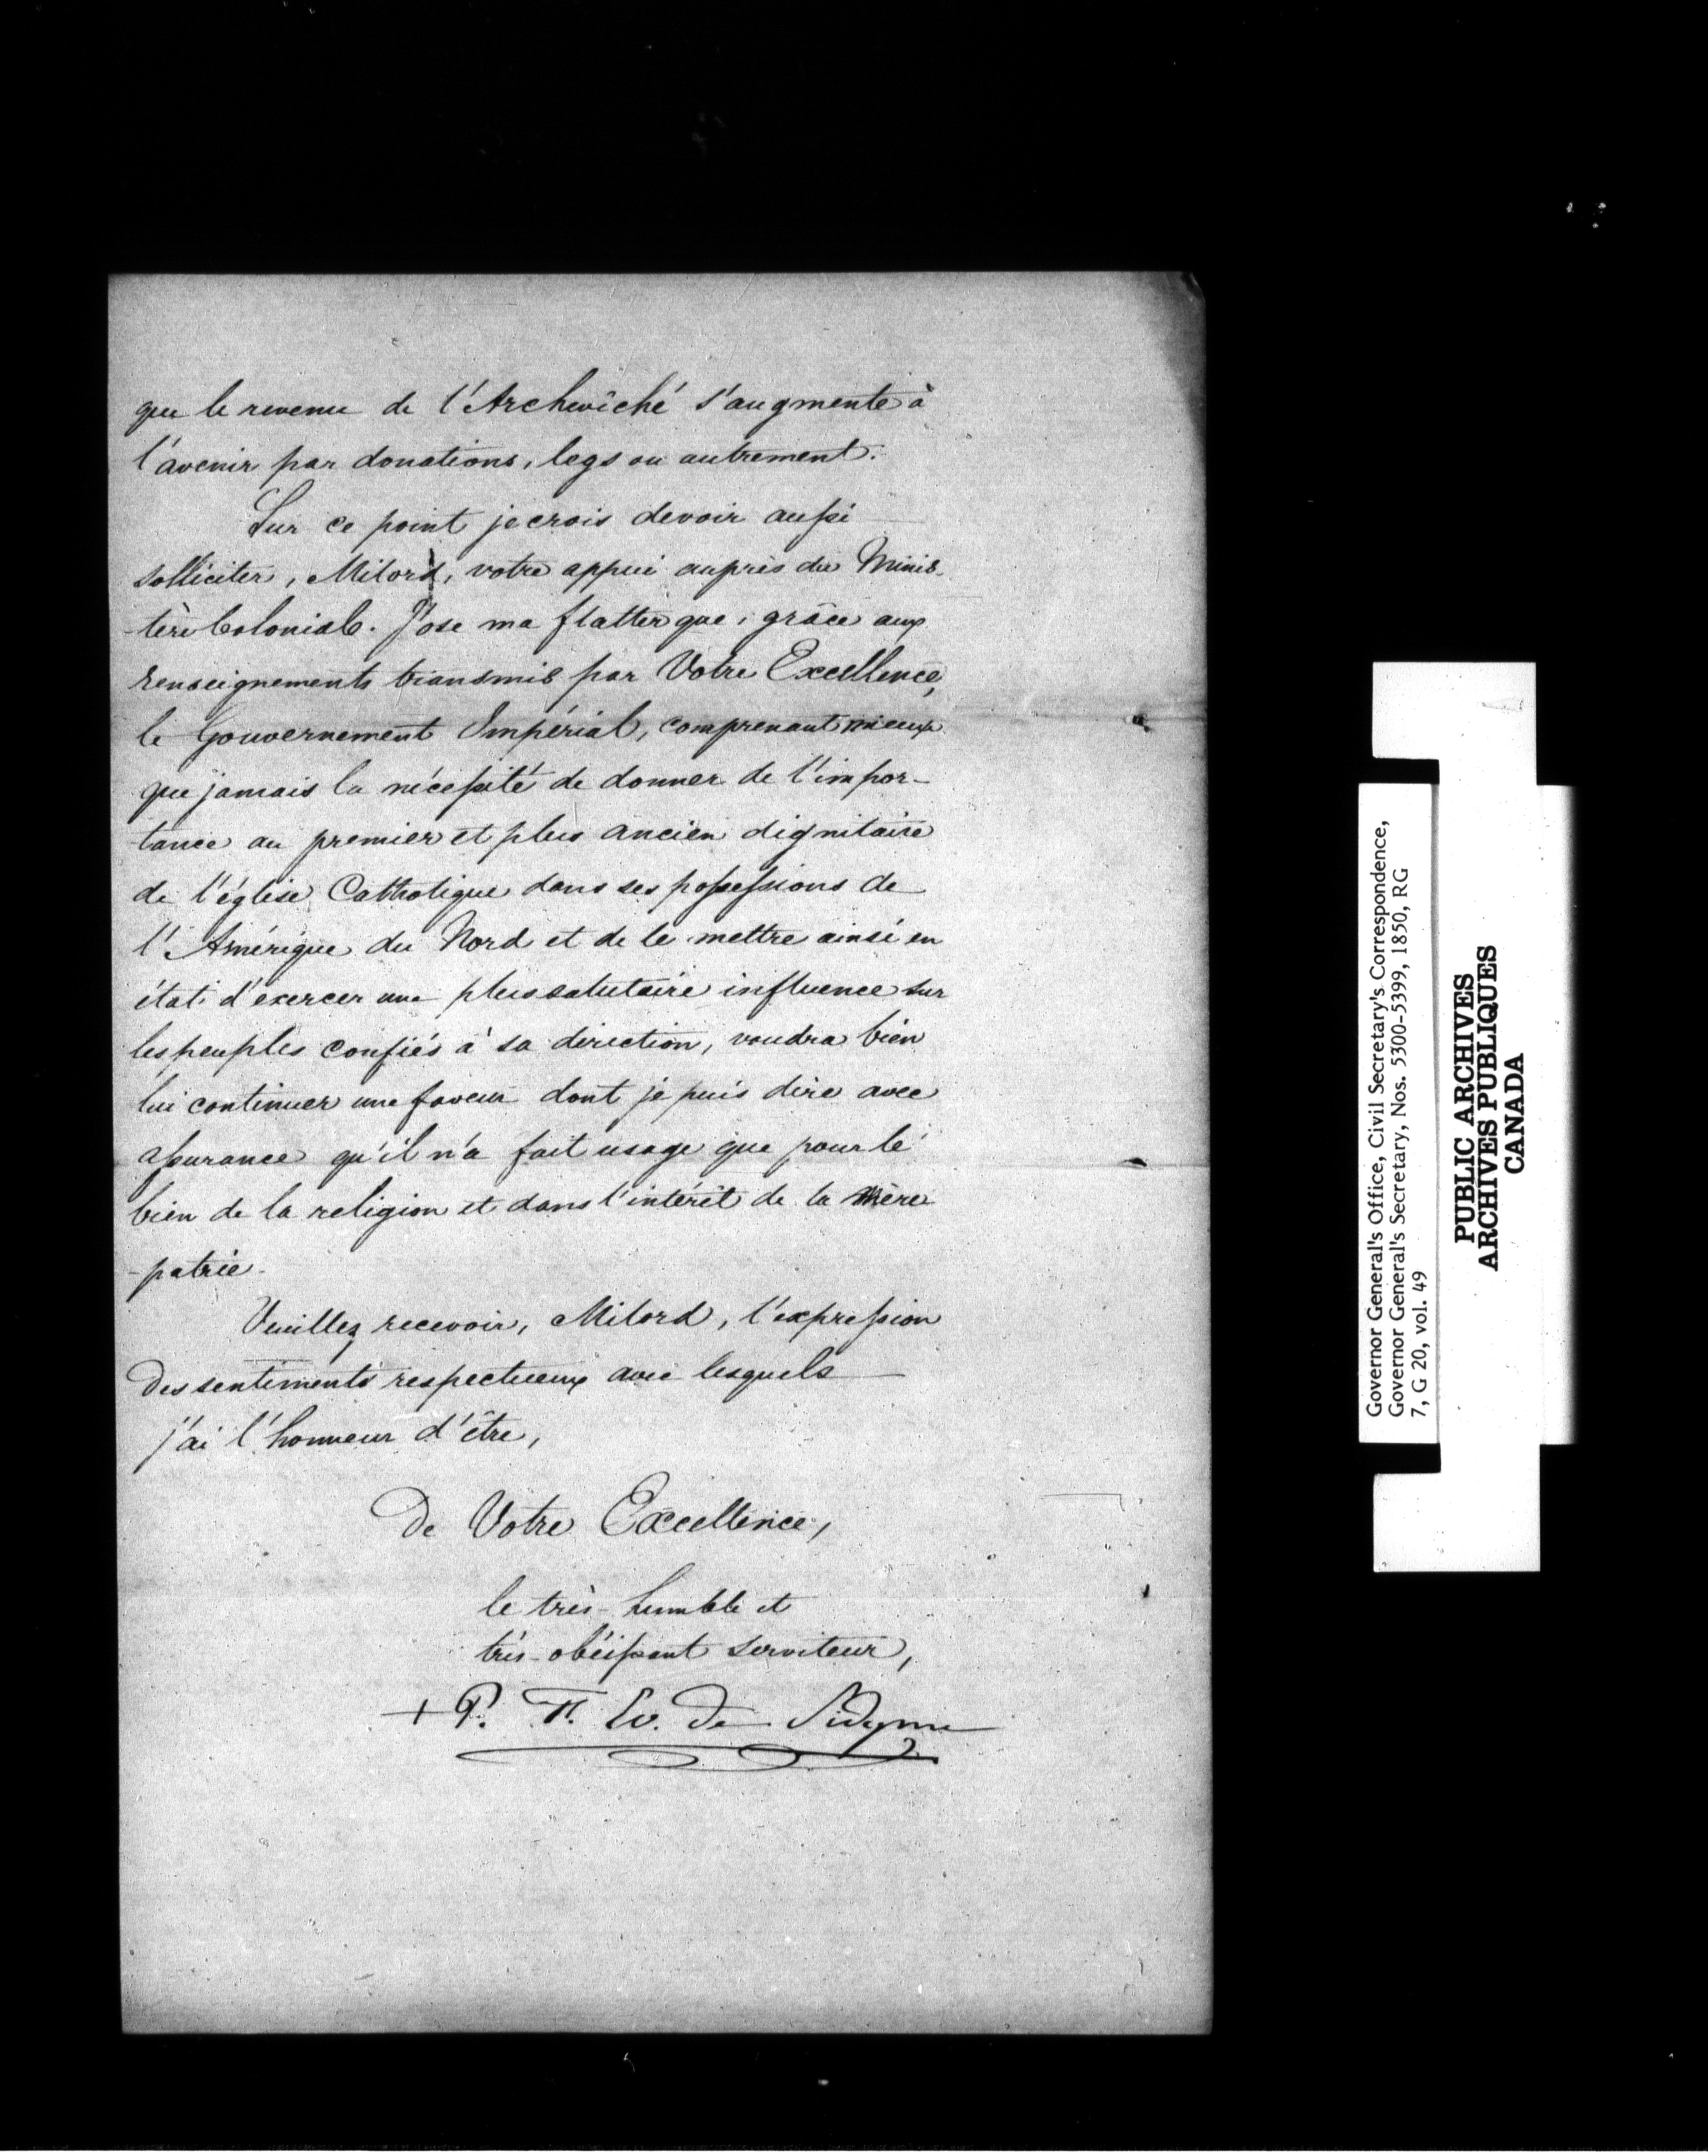 que le revenu de l'Archevêché s'augmente à
l'avenir par donations, legs ou autrement.
Sur ce point je crois devoir aussi
solliciter, Milord, votre appui auprès du Minis-
-tère Colonial. J'ose me flatter que, grâce aux
renseignements transmis par Votre Excellence,
le Gouvernement Impérial, comprenant mieux
que jamais la nécessité de donner de l'impor-
tance au premier et plus ancien dignitaire
de l'église Catholique dans ses possessions de
l'Amérique du Nord et de le mettre ainsi en
état d'exercer une plus salutaire influence sur
les peuples confiés à sa direction, voudra bien
lui continuer une faveur dont je puis dire avec
assurance qu'il n'a fait usage que pour le
bien de la religion et dans l'intérêt de la mère
-patrie.
Veuillez recevoir, Milord, l'expression
des sentiments respectueux avec lesquels
j'ai l'honneur d'être,
De Votre Excellence,
le très-humble et
très-obéissant serviteur,
+ P. F. Ev. de Sidyme
Governor General's Office, Civil Secretary's Correspondence,
Governor General's Secretary, Nos. 5300-5399, 1850, RG
7, G 20, vol. 49
PUBLIC ARCHIVES
ARCHIVES PUBLIQUES
CANADA